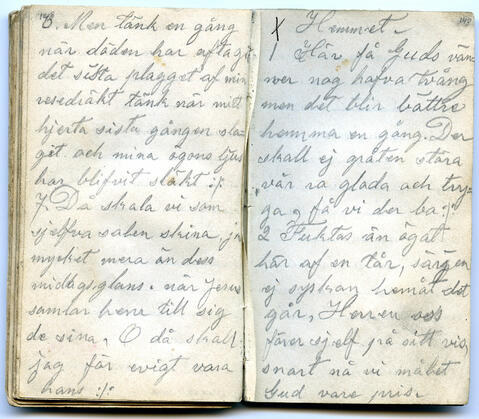 6. Men tänk en gång
när döden har aftagit
det sista plagget af min
resedräkt tänk när mitt
hjerta sista gången sla-
git och mina ögons ljus
har blifvit släkt :/:
7. Då skala vi som
sjelfva solen skina, ja
mycket mera än dess
middagsglans. när Jesus
samlar hene till sig
de sina, O då skall
jag för evigt vara
hans :/:
X Hemmet.
1 Här få Guds vän-
ner nog hafva tvång
men det blir bättre
hemma en gång. Der
skall ej gråten störa
vår ra glada och try-
ga, få vi der bo :/:
2 Fuktas än ögat
här af en tår, sörgen
ej syskon hemåt det
går, Herren oss
förer sjelf på sitt vis,
snart nå vi målet
Gud vare pris.